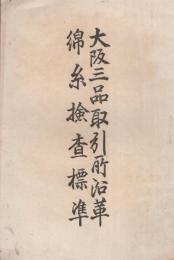 大阪三品取引所沿革
綿糸檢査標準